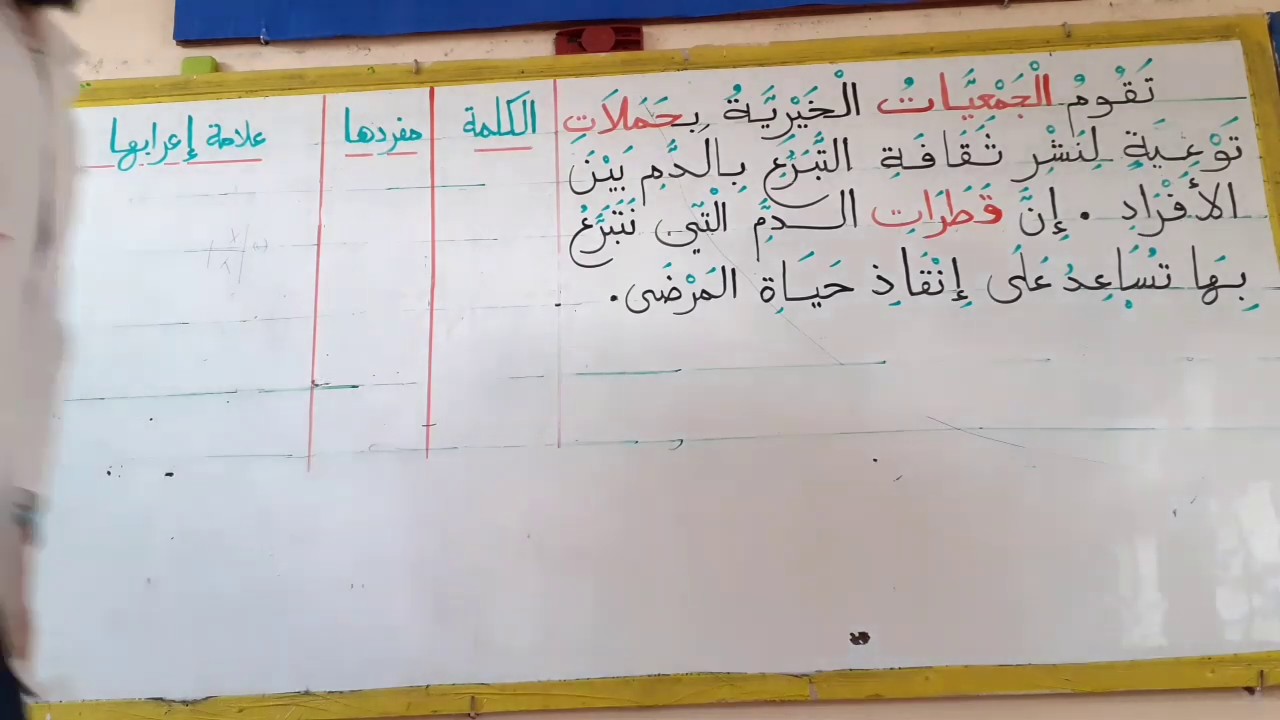 تَقُومُ الْجَمْعِيَّاتُ الْخَيْرِيَّةُ بِحَمَلَاتِ
تَوْعِيَةٍ لِنَشْرِ ثَقَافَةِ التَّبَرُّعِ بِالدَّمِ بَيْنَ
الأَفْرَادِ . إِنَّ قَطَرَاتِ الـدَّمِ الْتِي نَتَبَرَّعُ
بِهَا تُسَاعِدُ عَلَى إِنْقَاذِ حَيَاةِ المَرْضَى .
الكلمة
مفردها
علامة إعرابها